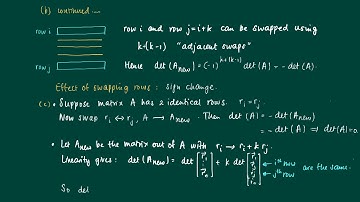 (b) continued....
row i
row j
row i and row j = i+k can be swapped using
k+(k-1) "adjacent swaps"
Hence det(A_new) = (-1)^{k+(k-1)} det(A) = - det(A).
Effect of swapping rows : sign change.
(c) • Suppose matrix A has 2 identical rows. r_i = r_j.
Now swap r_i ↔ r_j, A → A_new. Then det(A) = - det(A_new)
= - det(A) ⇒ det(A)=0.
• Let A_new be the matrix out of A with r_i → r_i + k r_j.
Linearity gives: det(A_new) = det [r_1 ⋮ r_n] + k det [r_1 r_j r_j r_n] ← ith row
← jth row
are the same.
So det